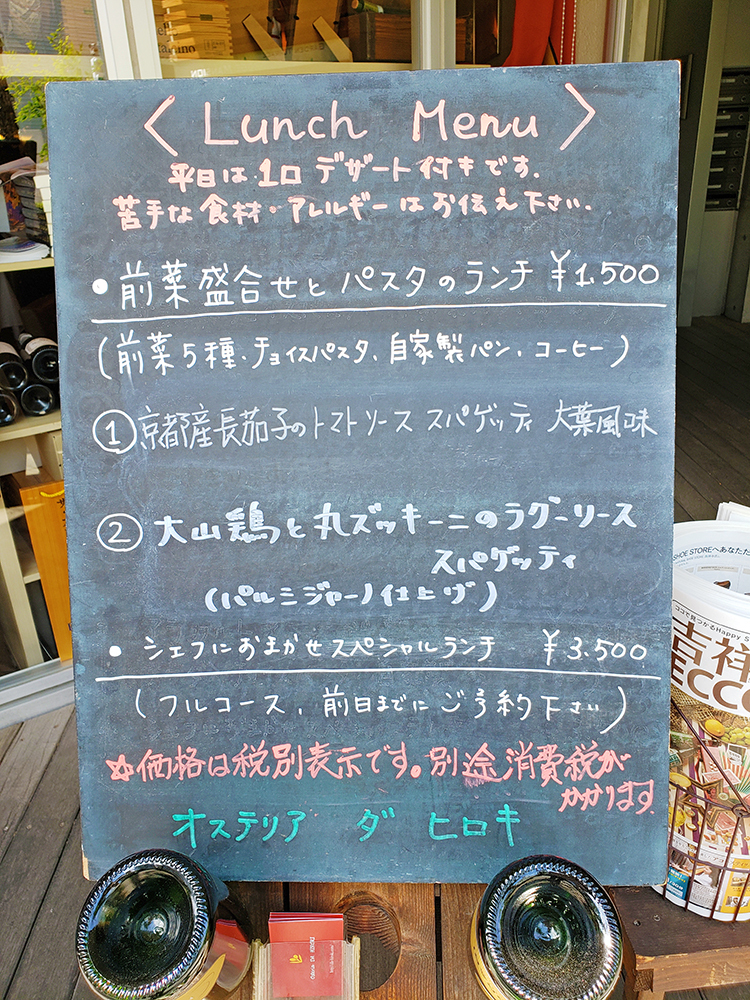 〈 Lunch Menu 〉
平日は1口デザート付きです.
苦手な食材・アレルギーはお伝え下さい.
• 前菜盛合せとパスタのランチ ¥1.500
(前菜5種、チョイスパスタ、自家製パン、コーヒー)
① 京都産長茄子のトマトソース スパゲッティ 大葉風味
② 大山鶏と丸ズッキーニのラグーソース
スパゲッティ
(パルミジャーノ仕上げ)
• シェフにおまかせスペシャルランチ ¥3.500
(フルコース、前日までにご予約下さい)
☆価格は税別表示です。別途消費税が
かかります
オステリア ダ ヒロキ
SHOE STOREへあなただ
ココで見つかるHappy S
吉祥
ECCO